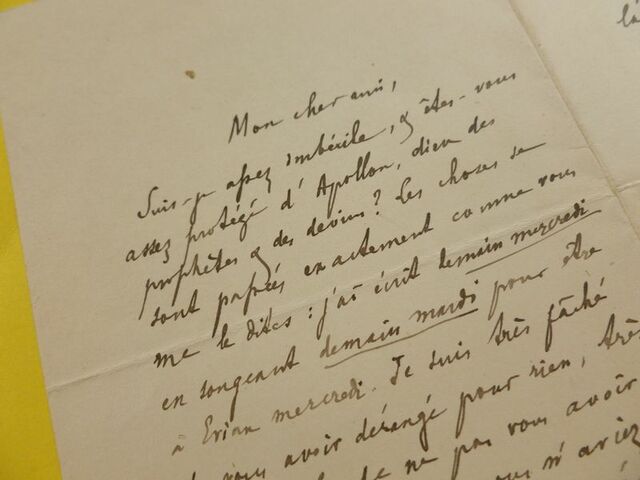 là
Mon cher ami,
Suis-je assez imbécile, & êtes-vous
assez protégé d'Apollon, dieu des
prophètes & des devins? Les choses se
sont passées exactement comme vous
me le dites: j'ai écrit demain mercredi
en songeant demain mardi pour être
à Evian mercredi. Je suis très fâché
vous avoir dérangé pour rien, très
de ne pas vous avoir
vous m'aviez